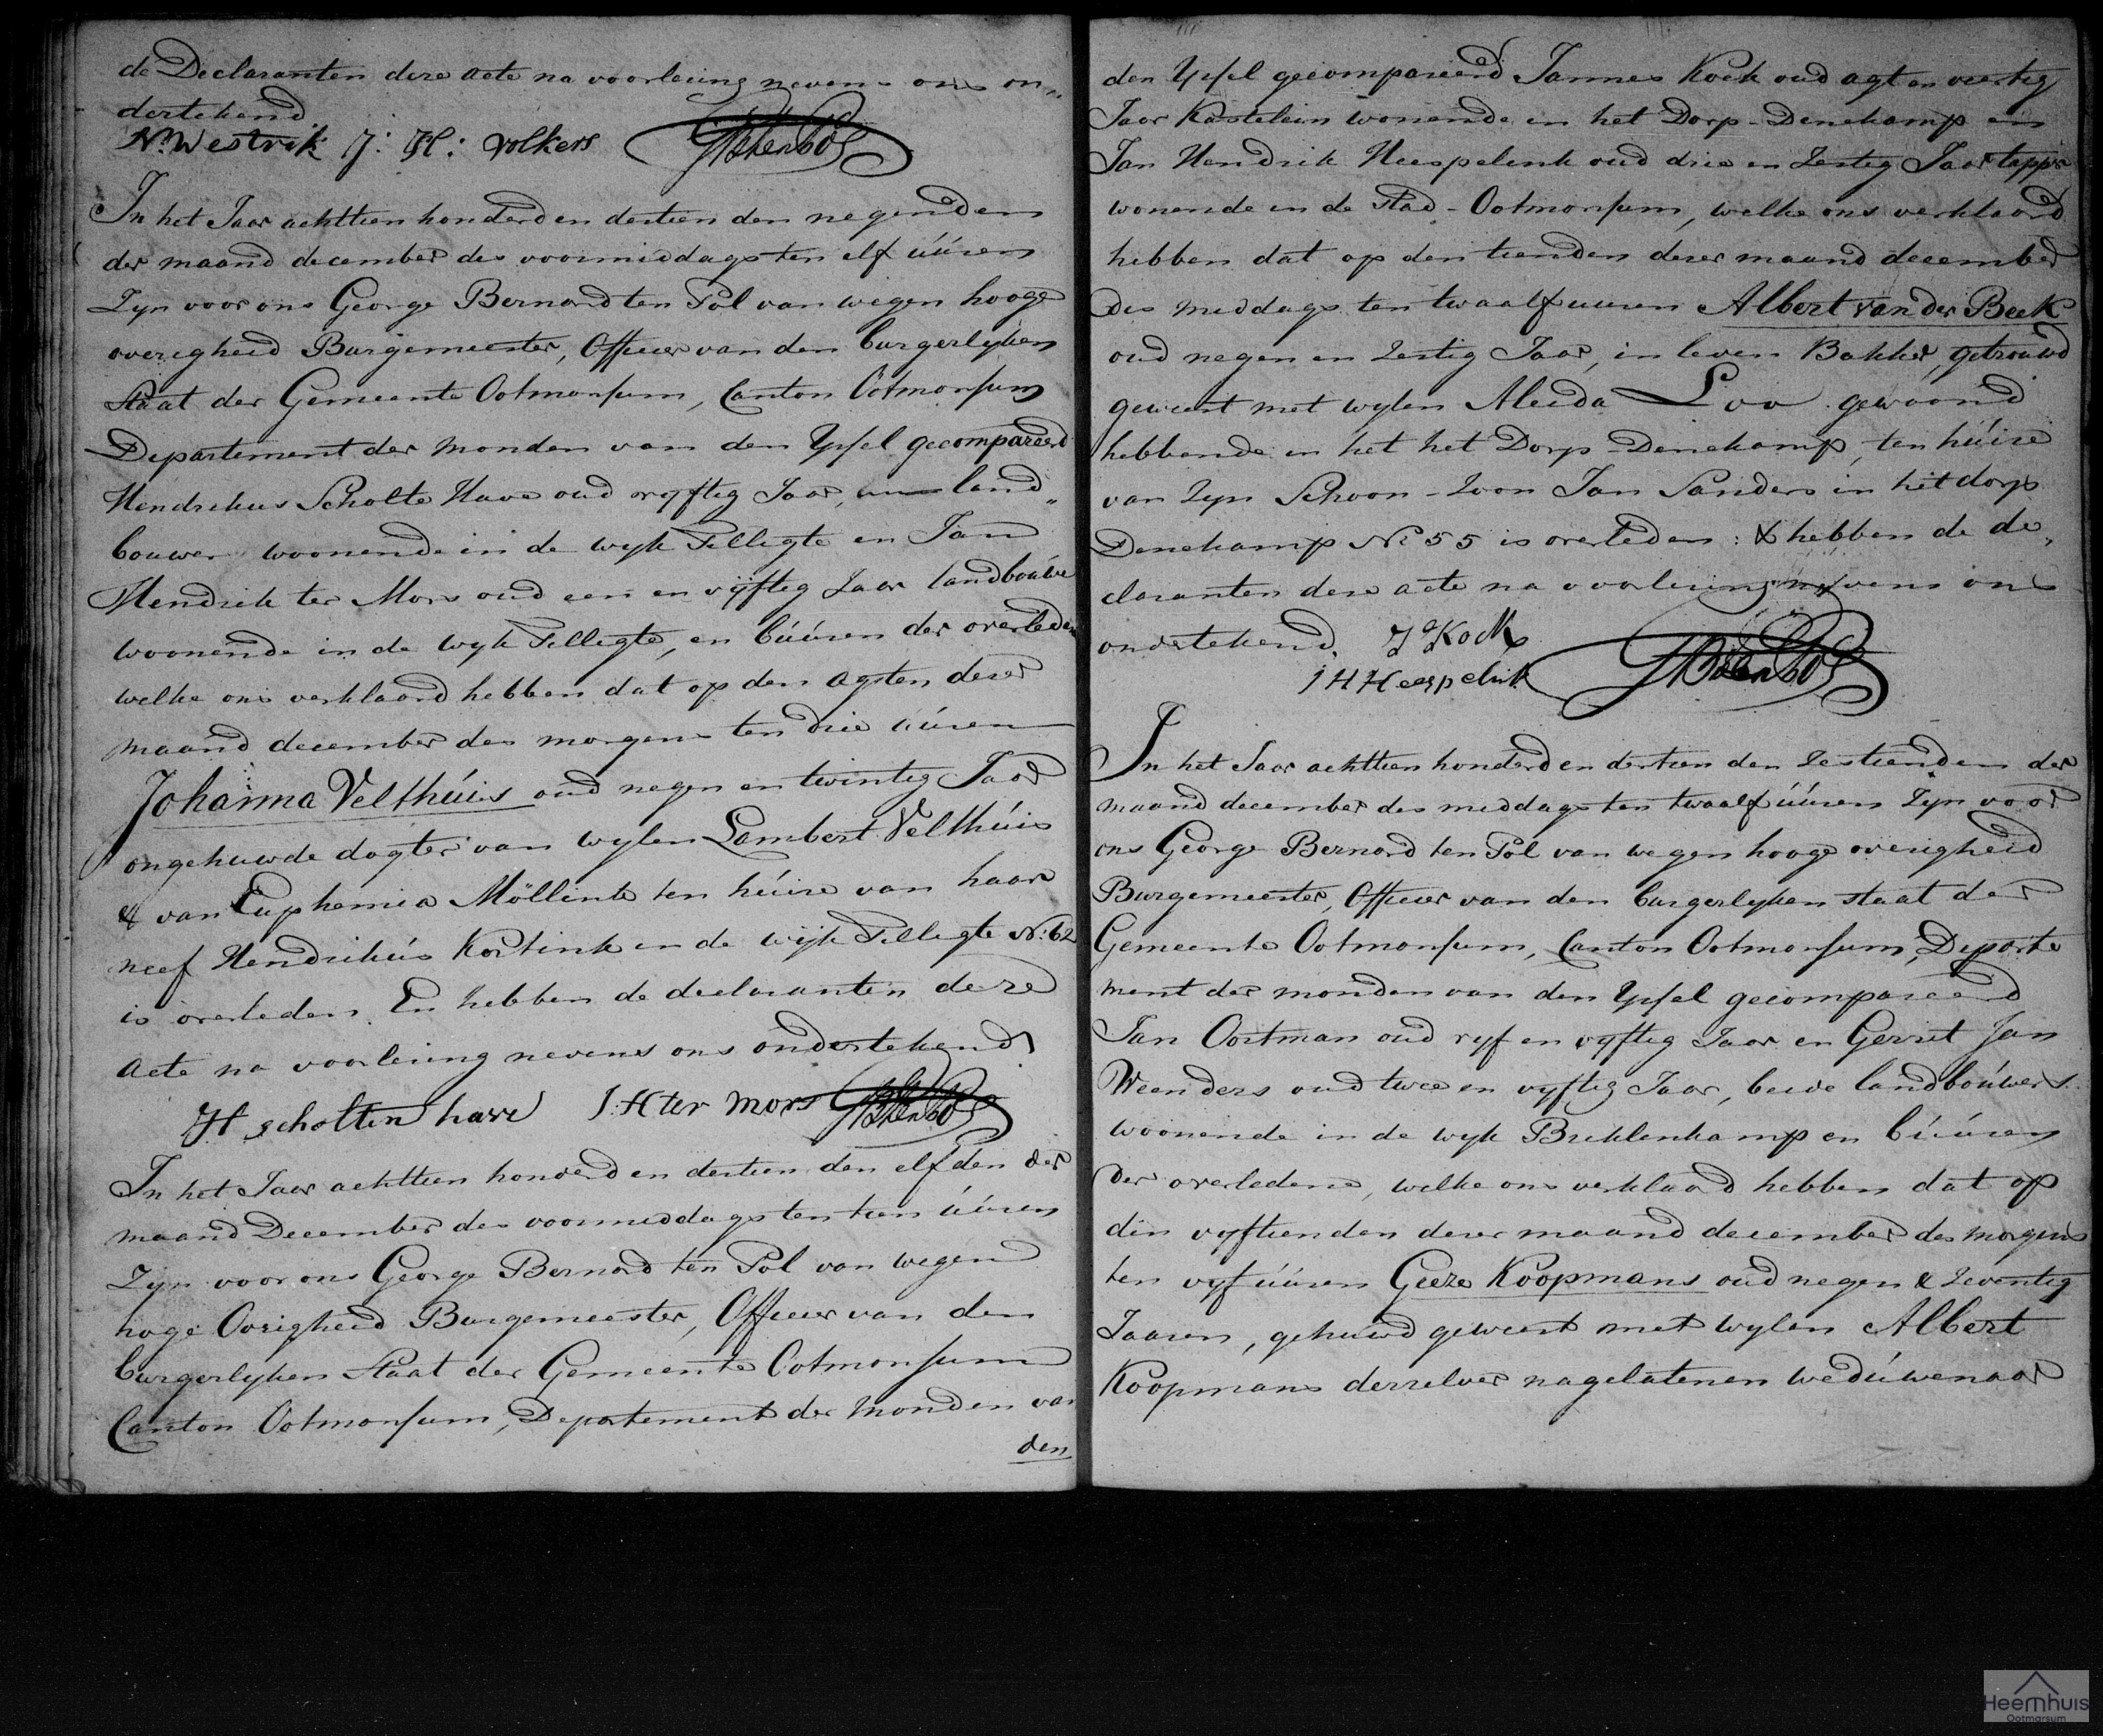 de Declaranten deze acte na voorlezing nevens ons on„
dertekend
N. Westrik J: H: Volkers GBtenPol
In het Jaar achttien honderd en dertien den negenden
der maand december des voormiddags ten elf úúren
Zyn voor ons George Bernard ten Pol van wegen hooge
overigheid Burgemeester, Officier van den burgerlyken
Staat der Gemeente Ootmarsum, Canton Ootmarsum
Departement der Monden van den Yssel gecompareerd
Hendrikus Scholte Have oud vyftig Jaar, land„
bouwer woonende in de wyk Tilligte en Jan
Hendrik ter Mors oud een en vyftig Jaar landboúwer
woonende in de wyk Tilligte, en búúren der overleden
welke ons verklaard hebben dat op den agsten dezer
maand december des morgens ten drie úúren
Johanna Velthúis oud negen en twintig Jaar
ongehuwde dogter van wylen Lambert Velthúis
& van Euphemia Möllink ten húize van haar
neef Hendrikús Kortink in de wijk Tilligte No: 62
is overleden. En hebben de declaranten deze
Acte na voorlezing nevens ons ondertekend
H scholten have J:H ter Mors GBtenPol
In het Jaar achttien honderd en dertien den elfden der
maand December des voormiddags ten tien úúren
Zyn voor ons George Bernard ten Pol van wegen
hoge Ovrigheid Burgemeester, Officier van den
burgerlyken Staat der Gemeente Ootmarsum
Canton Ootmarsum, Departement der Monden van
den
den Yssel gecompareerd Jannes Kock oud agt en veertig
Jaar Kastelein wonende in het Dorp Denekamp en
Jan Hendrik Heespelink oud drie en Zestig Jaar tapper
wonende in de Stad Ootmarsum, welke ons verklaard
hebben dat op den tienden dezer maand december
des middags ten twaalf uuren Albert van der Beek
oud negen en Zestig Jaar, in leven Bakker, getrouwd
geweest met wylen Aleida Loo gewoond
hebbende in het het Dorp Denekamp, ten húize
van Zyn Schoon-Zoon Jan Sanders in het dorp
Denekamp No 55 is overleden: & hebben de de„
claranten deze acte na voorlezing nevens ons
ondertekend. J Kock
J H Heespelink GBtenPol
In het Jaar achttien honderd en dertien den Zestienden der
maand december des middags ten twaalf úúren Zyn voor
ons George Bernard ten Pol van wegen hooge overigheid
Burgemeester, Officier van den burgerlyken staat der
Gemeente Ootmarsum, Canton Ootmarsum, Departe
ment der monden van den Yssel gecompareerd
Jan Oortman oud vyf en vyftig Jaar en Gerrit Jan
Weenders oud twee en vyftig Jaar, beide landboúwers
woonende in de wyk Breklenkamp en búúren
der overledene, welke ons verklaard hebben dat op
den vyftienden dezer maand december des morgens
ten vyf úúren Geeze Koopmans oud negen & Zeventig
Jaaren, gehuwd geweest met wylen Albert
Koopmans deszelver nagelatenen wedúwenaar
Heemhuis
Ootmarsum